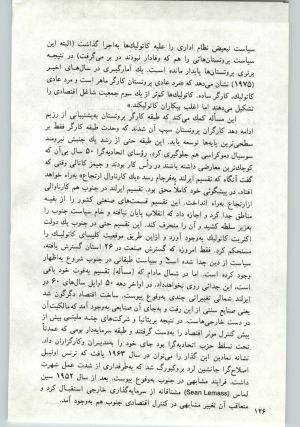 سیاست تبعیض نظام اداری را علیه کاتولیك‌ها به‌اجرا گذاشت (البته این
سیاست پروتستان‌هائی را هم که وفادار نبودند در بر می‌گرفت) در نتیجه
برتری پروتستان‌ها پایدار مانده است. یك آمارگیری در سال‌های اخیر
(۱۹۷۵) نشان می‌دهد که فرد عادی پروتستان کارگر ماهر است و مرد عادی
کاتولیك، کارگر ساده. کاتولیك‌ها کمتر از یك سوم جمعیت شاغل اقتصادی را
تشکیل می‌دهند اما اغلب بیکاران کاتولیکند.»
این مسأله کمک می‌کند که طبقه کارگر پروتستان به‌پشتیبانی از رژیم
ادامه دهد کارگران پروتستان سبب آن شدند که وحدت طبقه کارگر فقط بر
سطحی‌ترین پایه‌ها توسعه یابد. این طبقه حتی از رشد یك جنبش نیرومند
سوسیال دموکراسی هم جلوگیری کرد. رؤسای اتحادیه‌گرا ۵۰ سال بی‌آن که
کوچکترین معارضی داشته باشند در رأس کار بودند و جیمز کانالی وقتی که
گفت آنگاه که تقسیم ایرلند به‌فرجام رسد «یك کارناوال ارتجاع» به‌راه خواهد
افتاد در پیشگوئی خود کاملاً محق بود. تقسیم ایرلند در جنوب هم کارناوالی
ازارتجاع به‌راه انداخت. این تقسیم قسمت‌های صنعتی کشور را از بقیه
مناطق جدا کرد و اجازه داد که انقلاب پایان نیافته و خام سیاست جنوب را
به‌زیر سلطه کشید و آن را منحرف کند. این تقسیم حتی در جنوب یك دولت
اکثریت کاتولیك به‌وجود آورد و ازاین طریق موقعیت کلیسای کاتولیك را
مستحکم کرد. فقط امروزه که گسترش صنعت در ۲۶ استان گسترش یافته،
سیاست از دین جدا شده است و سیاست طبقاتی در جنوب شروع به‌اظهار
وجود کرده است. اما در شمال مادام که [مسأله] تقسیم به‌قوت خود باقی
است، این جدائی روی نخواهدداد. در اواخر دهه ۵۰ اوایل سال‌های ۶۰ در
ایرلند شمالی تغییراتی چندی به‌وقوع پیوست. ساخت اقتصاد دگرگون شد
یعنی صنایع سنتی از این رفت و به‌جای آن صنایعی به‌وجود آمد که مالکیت آن
در دست خارجی‌هاست. در نتیجه بریتانیا و شرکت‌های چند ملیتی بیش از
پیش کنترل موثر اقتصاد را به‌دست گرفتند و طبقه سرمایه‌دار بومی که عمدتاً
تحت تسلط حزب اتحادیه‌گرا بود جای خود را به‌مدیران وکارگزاران داد.
نشانه نمادین این گذار را می‌توان در سال ۱۹۶۳ یافت که ترنس اونیل
اصلاح‌گرا جانشین لرد بروکبورگ شد که به‌طرفداری از شدت عمل شهرت
داشت. فرایند مشابهی در جنوب به‌وقوع پیوست. بعد از سال ۱۹۵۲ سین
لماس (Sean Lemass) مشتاقانه از سرمایه‌گذاری خارجی استقبال کرد و
متعاقب آن تغییر مشابهی در کنترل اقتصادی جنوب هم به‌وجود آمد.
۱۲۶